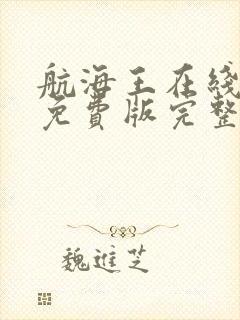 航海王在线
免費版完整
魏進芝